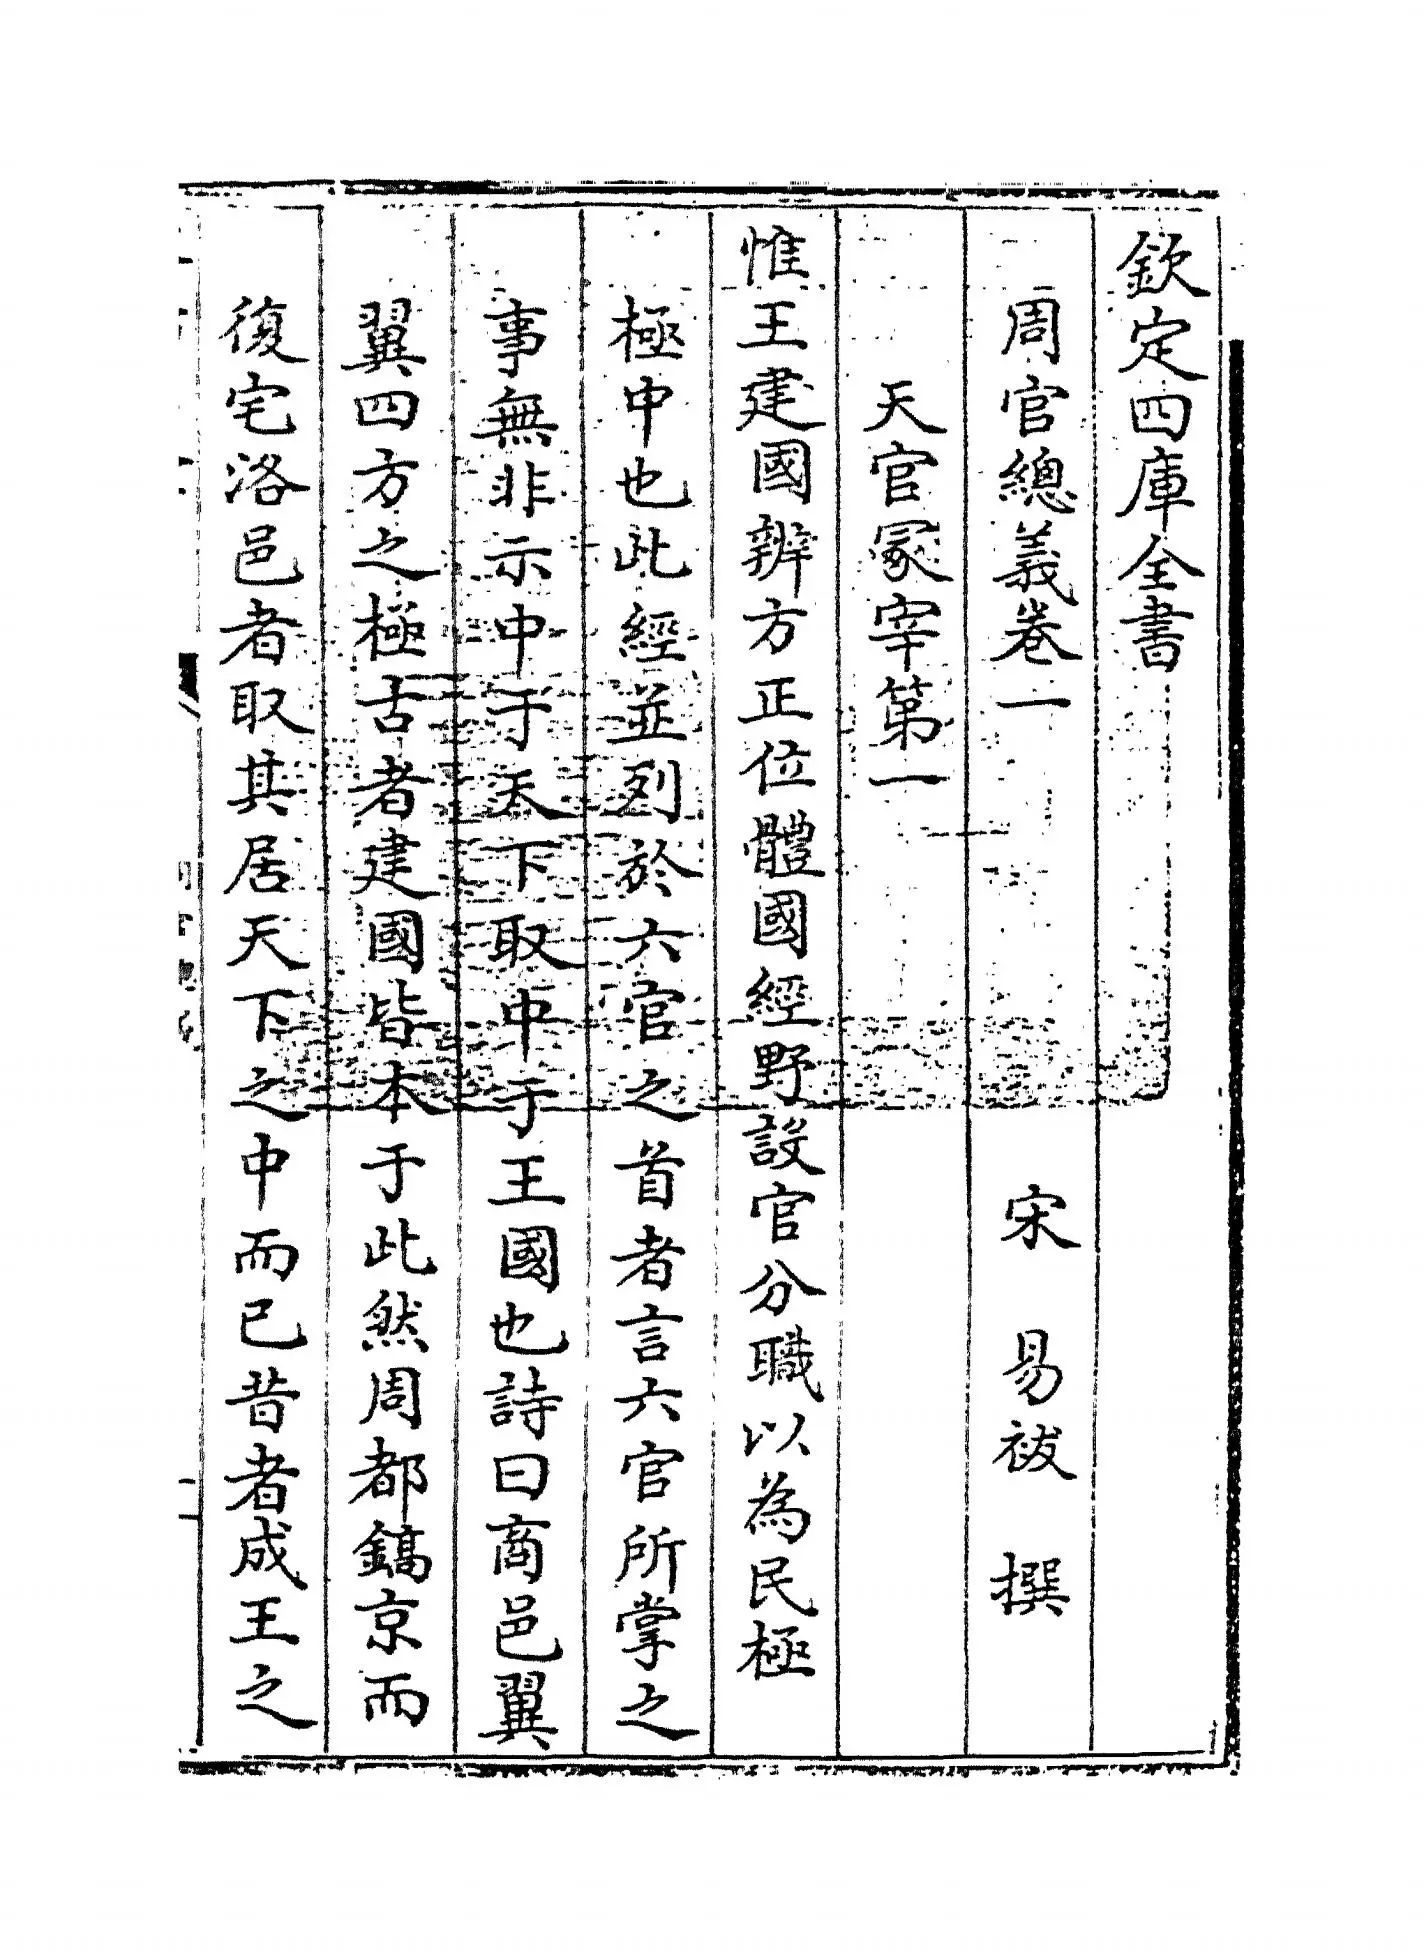 欽定四庫全書
周官總義卷一 宋 易祓 撰
天官冢宰第一
惟王建國辨方正位體國經野設官分職以為民極
極中也此經並列於六官之首者言六官所掌之
事無非示中于天下取中于王國也詩曰商邑翼
翼四方之極古者建國皆本于此然周都鎬京而
復宅洛邑者取其居天下之中而已昔者成王之